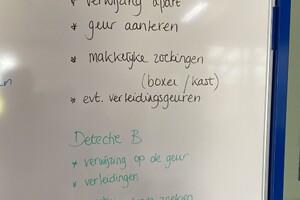 * verwijzing apart
* geur aanleren
* makkelijke zoekingen
(boxen / kast)
* evt. verleidingsgeuren
Detectie B
* verwijzing op de geur
* verleidingen
zoeken